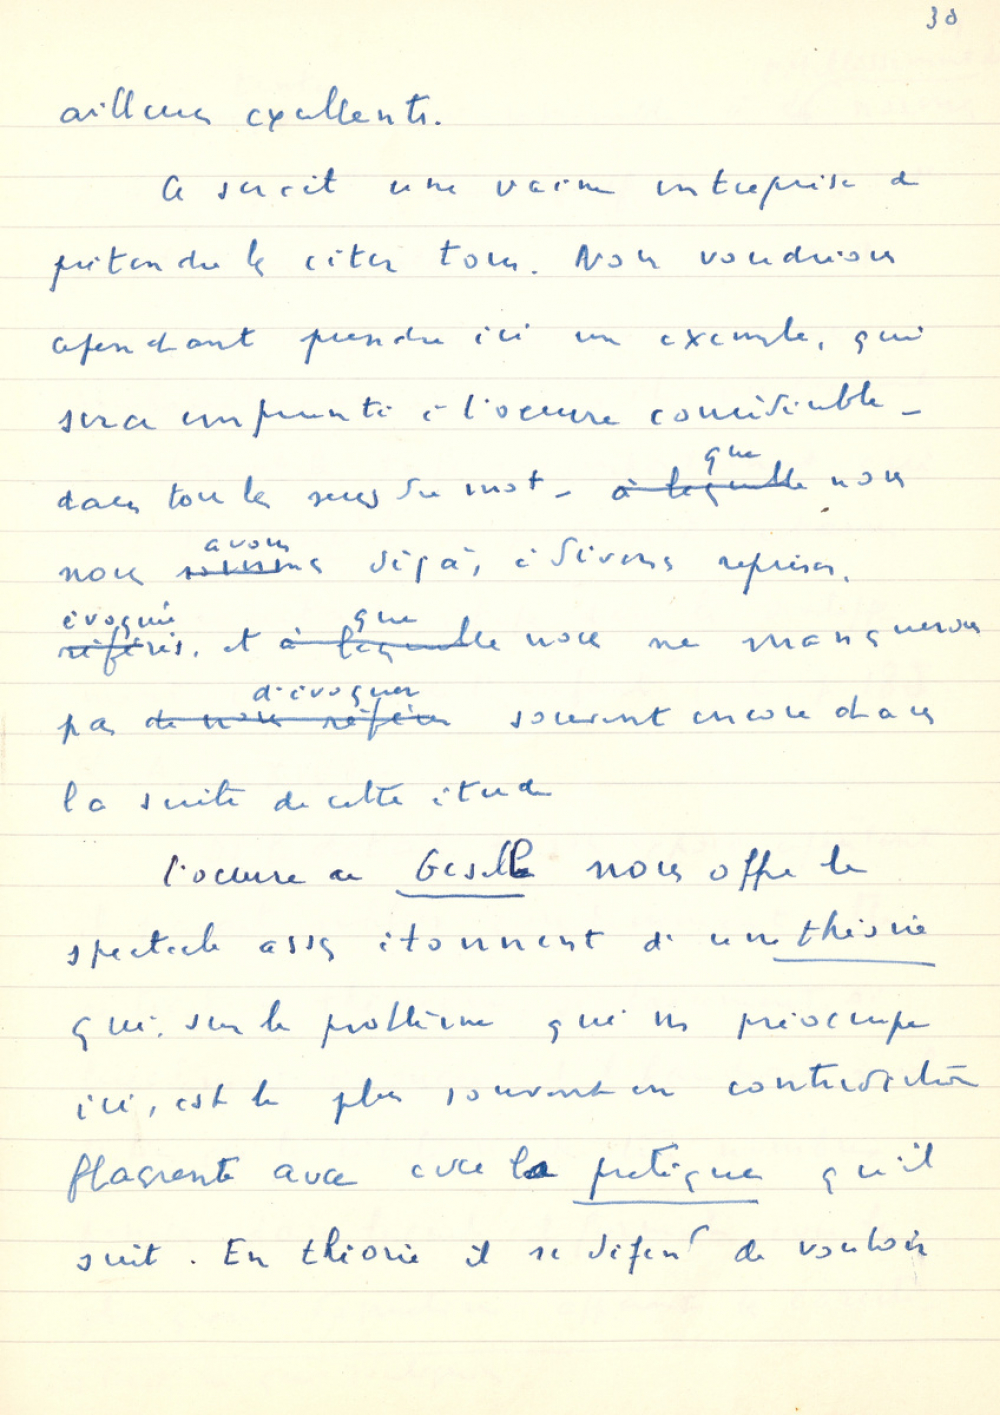 30
ailleurs excellents.
Ce serait une vaine entreprise de
prétendre les citer tous. Nous voudrions
cependant prendre ici un exemple, qui
sera emprunté à l'oeuvre considérable –
dans tous les sens du mot – à laquelle que nous
nous sommes avons déjà, à diverses reprises,
référés évoquée, et à laquelle que nous ne manquerons
pas de nous référer d'évoquer souvent encore dans
la suite de cette étude
l'oeuvre de Gesell nous offre le
spectacle assez étonnant d'une théorie
qui, sur le problème qui nous préoccupe
ici, est le plus souvent en contradiction
flagrante avec la pratique qu'il
suit. En théorie il se défend de vouloir